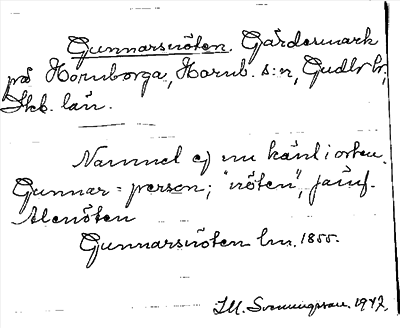 Gunnarsnöten. Gärdesmark
på Hornborga, Hornb. s:n, Gudh. hr,
Skb. län.
Namnet ej nu känt i orten.
Gunnar = person; "nöten", jämf.
Alenöten
Gunnarsnöten lm. 1855.
I.M. Svenningsson. 1947.